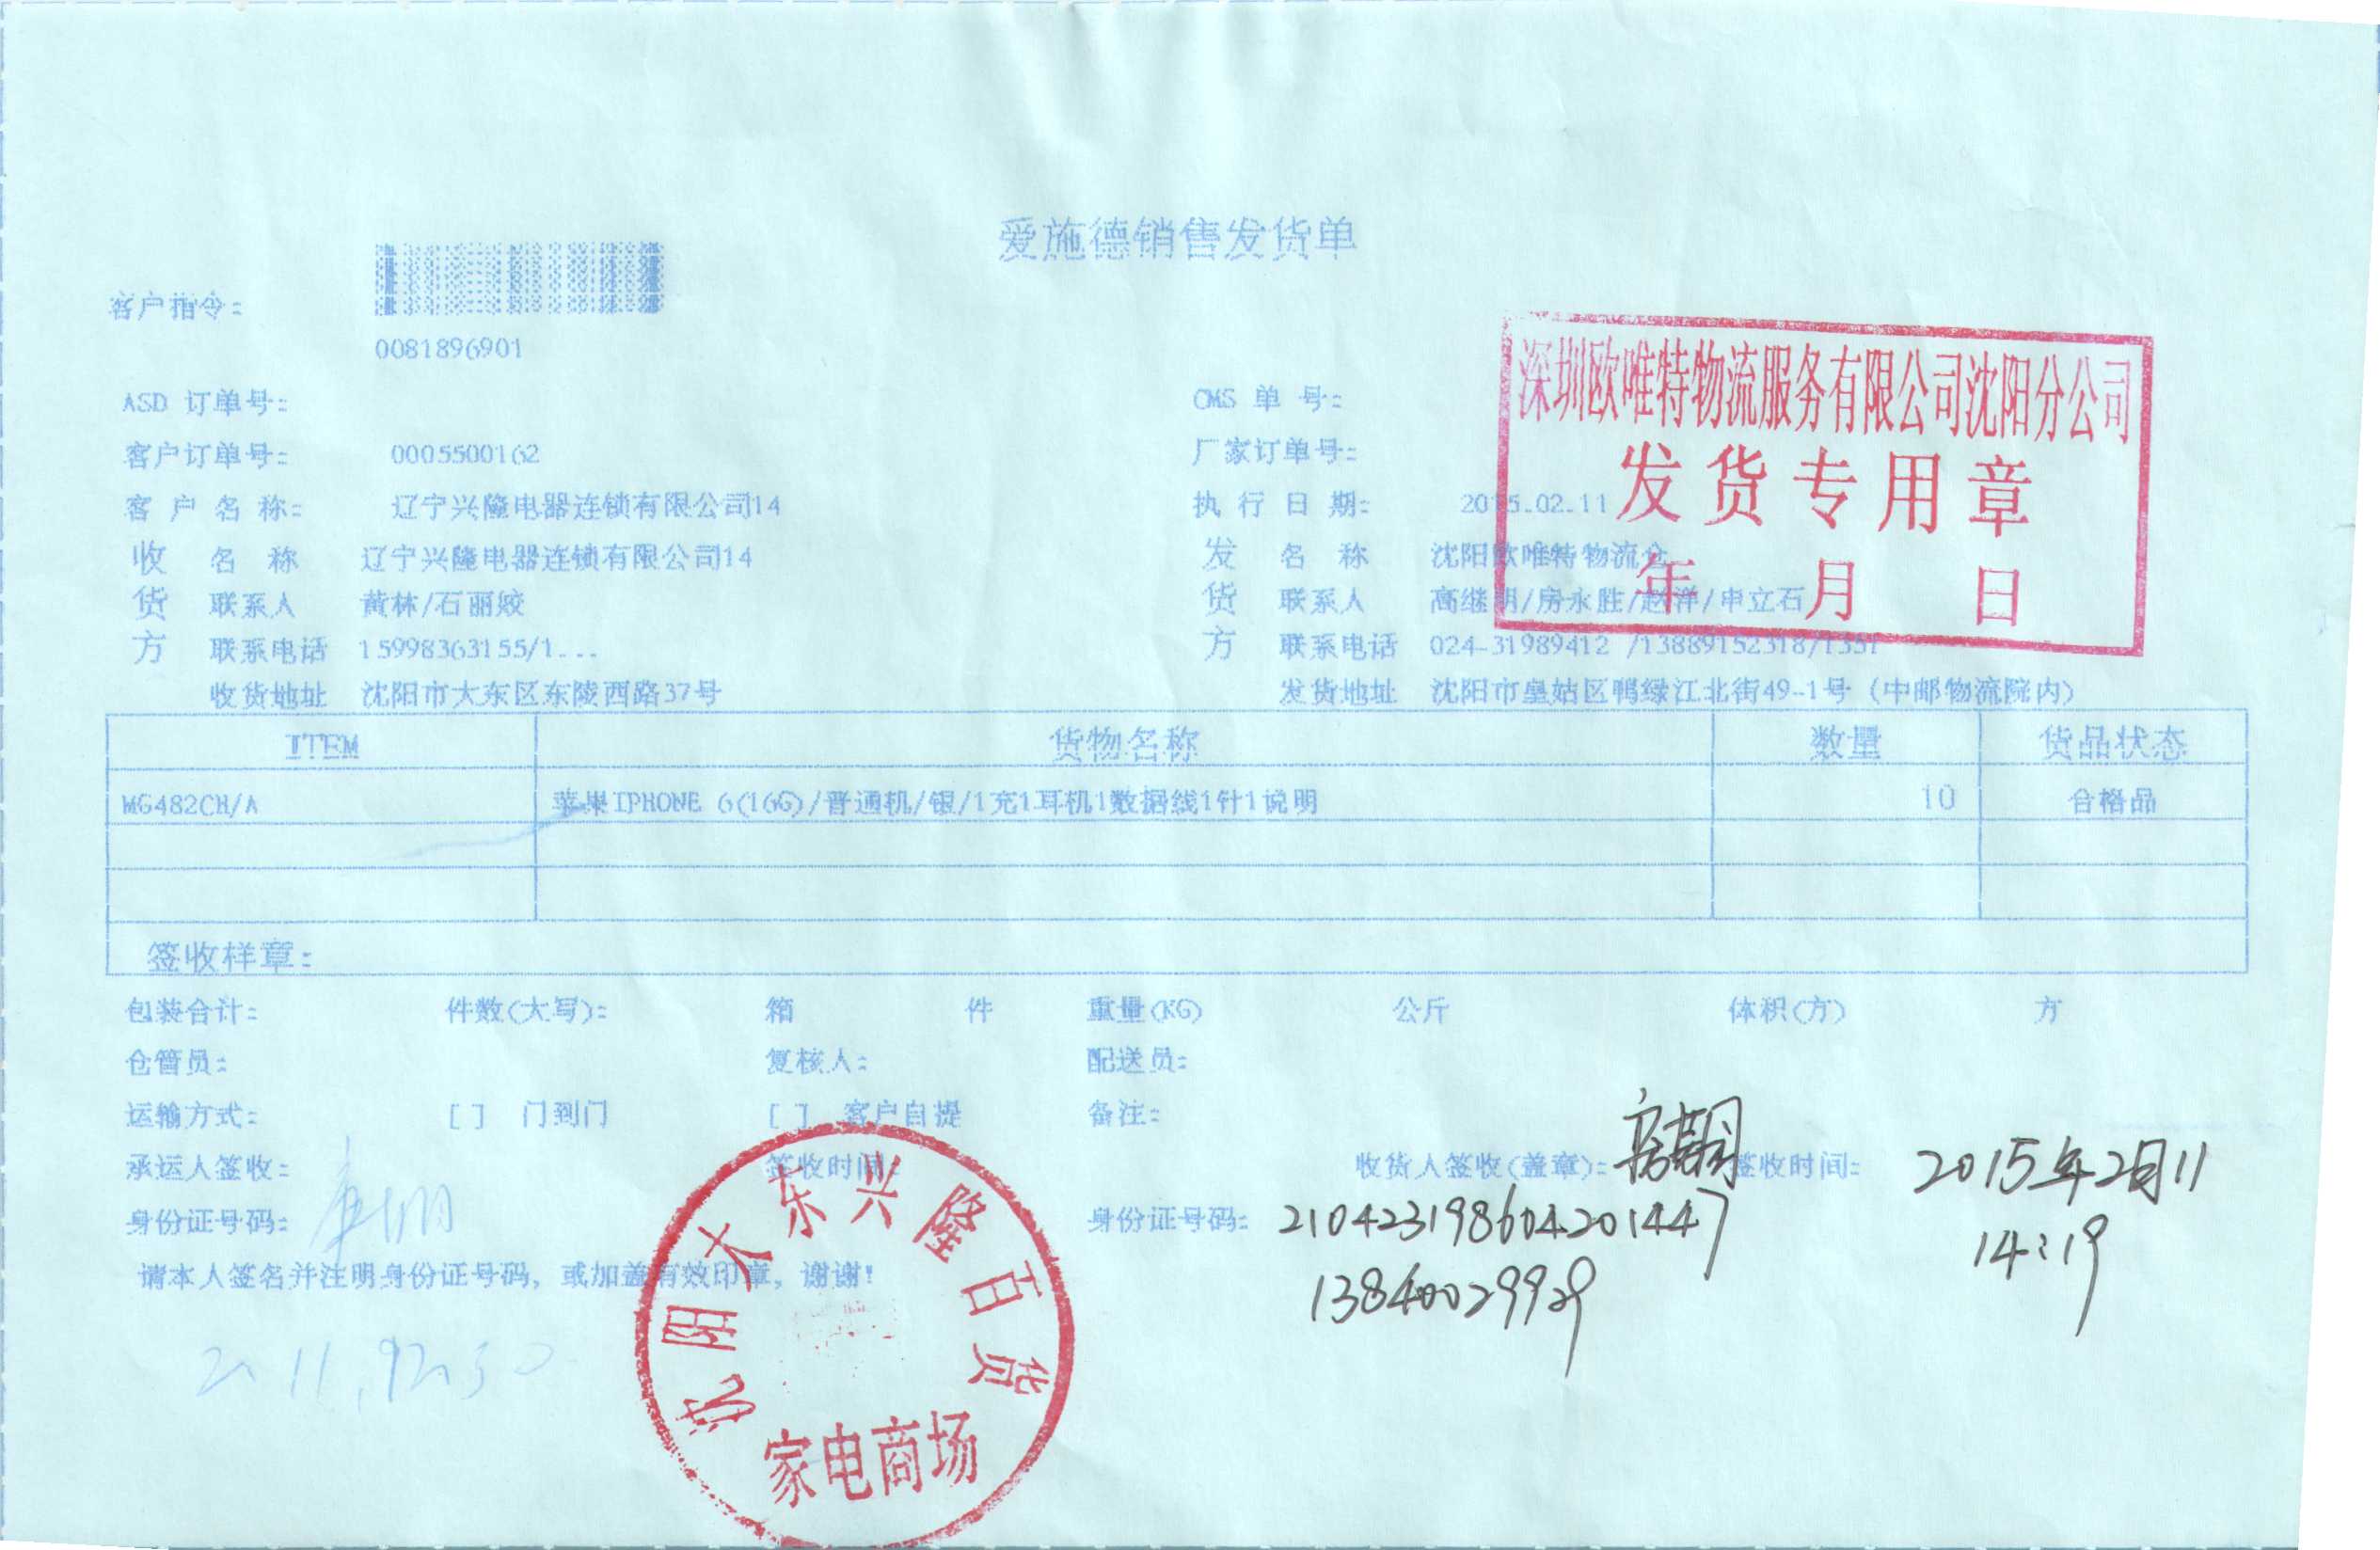 爱施德销售发货单
客户指令:
0081896901
ASD 订单号:
CMS 单 号:
客户订单号: 0005500162
厂家订单号:
客 户 名 称: 辽宁兴隆电器连锁有限公司14
执 行 日 期: 2015.02.11
收货方
名 称 辽宁兴隆电器连锁有限公司14
联系人 黄林/石丽姣
联系电话 15998363155/1...
收货地址 沈阳市大东区东陵西路37号
发货方
名 称 沈阳欧唯特物流仓
联系人 高继明/房永胜/赵洋/申立石
联系电话 024-31989412 /13889152318/1351
发货地址 沈阳市皇姑区鸭绿江北街49-1号 (中邮物流院内)
深圳欧唯特物流服务有限公司沈阳分公司
发货专用章
年 月 日
ITEM 货物名称 数量 货品状态
MG482CH/A 苹果IPHONE 6(16G)/普通机/银/1充1耳机1数据线1针1说明 10 合格品
签收样章:
包装合计: 件数(大写): 箱 件 重量(KG) 公斤 体积(方) 方
仓管员: 复核人: 配送员:
运输方式: [ ] 门到门 [ ] 客户自提 备注:
承运人签收: 签收时间: 收货人签收(盖章): 签收时间: 2015年2月11
14:19
身份证号码: 身份证号码: 210423198604201447
13840029929
请本人签名并注明身份证号码, 或加盖有效印章, 谢谢!
沈阳大东兴隆百货
家电商场